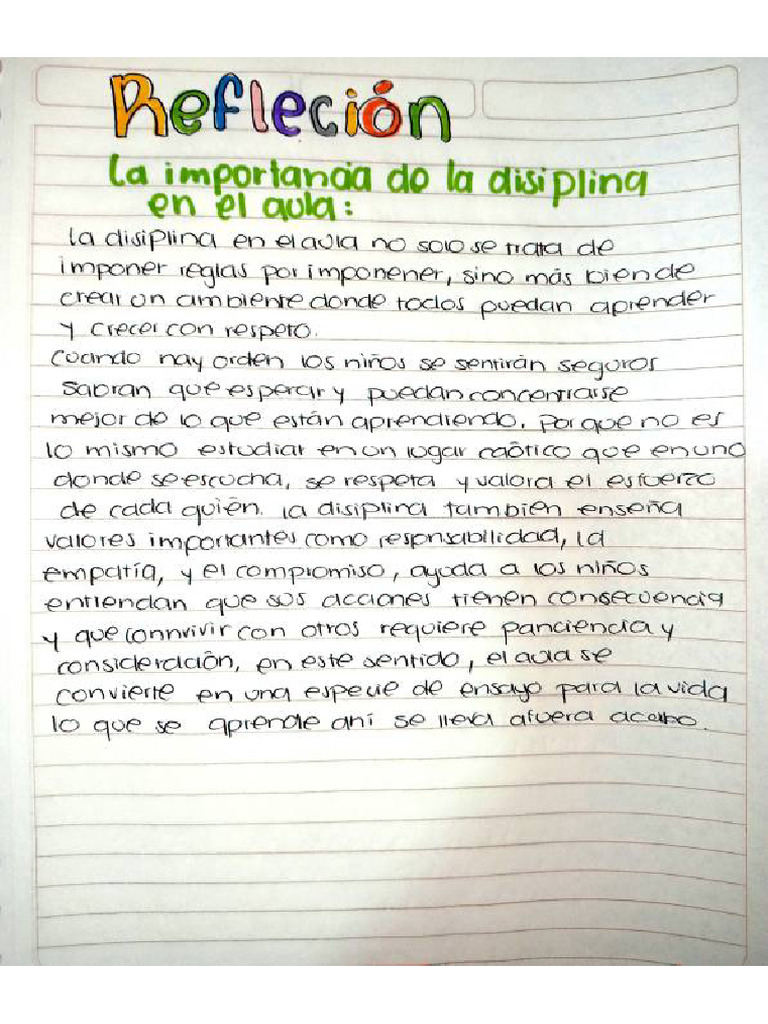 Refleción
La importancia de la disiplina
en el aula:
La disiplina en el aula no solo se trata de
imponer reglas por imponener, sino más bien de
crear un ambiente donde todos puedan aprender
y crecer con respeto.
Cuando hay orden los niños se sentirán seguros
sabran que esperar y puedan concentrarse
mejor de lo que están aprendiendo. Porque no es
lo mismo estudiar en un lugar caótico que en uno
donde se escucha, se respeta y valora el esfuerzo
de cada quién. La disiplina también enseña
valores importantes como responsabilidad, la
empatía, y el compromiso, ayuda a los niños
entiendan que sus acciones tienen consecuencia
y que connvivir con otros requiere panciencia y
consideración, en este sentido, el aula se
convierte en una especie de ensayo para la vida
lo que se aprende ahí se lleva afuera acabo.